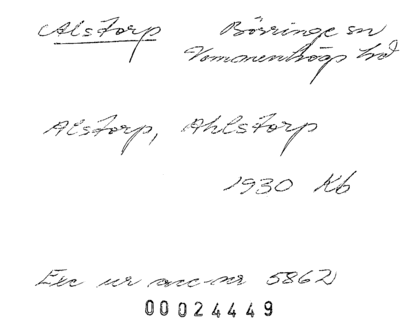 Alstorp Börringe sn
Vemmenhögs hd
Alstorp, Ahlstorp
1930 Kb
Exc ur acc-nr 5862
00024449